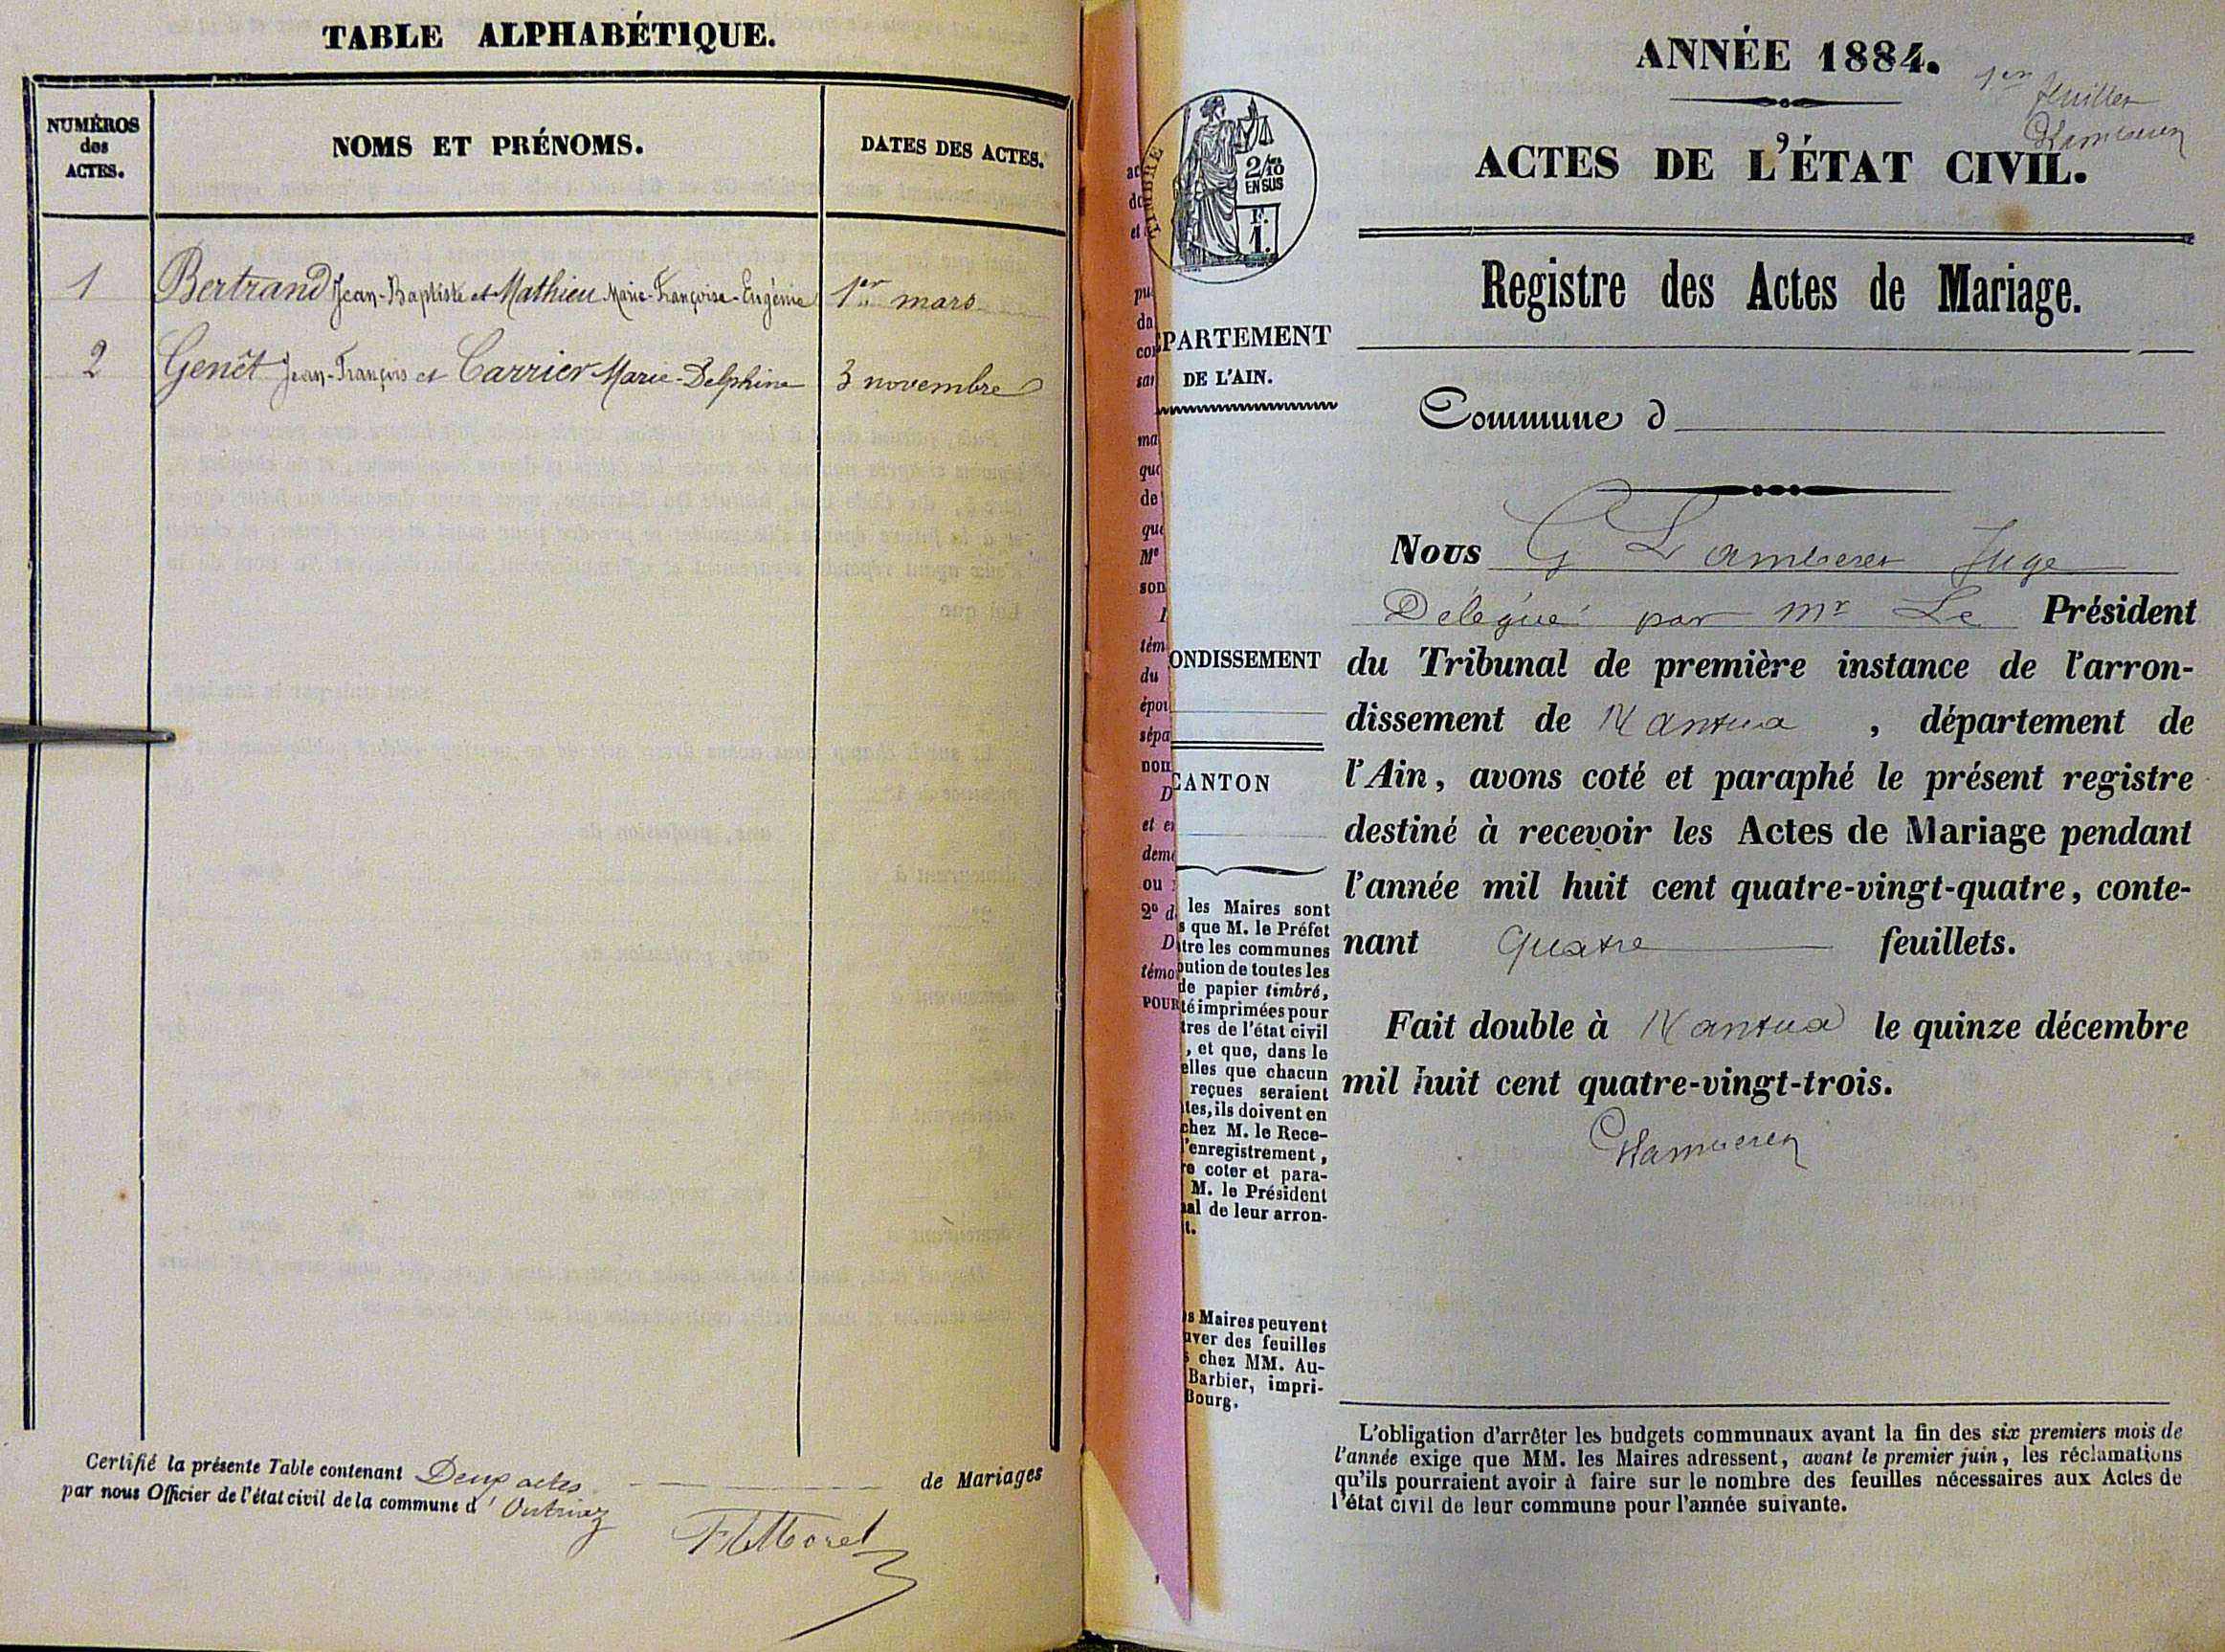 TABLE ALPHABÉTIQUE.
NUMÉROS
des
ACTES.
NOMS ET PRÉNOMS.
DATES DES ACTES.
1 Bertrand Jean-Baptiste et Mathieu Marie-Françoise-Eugénie 1er mars
2 Genêt Jean-François et Carrier Marie-Delphine 3 novembre
Certifié la présente Table contenant Deux actes de Mariages
par nous Officier de l'état civil de la commune d'Outriaz
ac
de
et
pu
da
con
sar
ma
que
de
que
Me
son
tém
du
épou
sépa
nou
D
et e
dem
ou
2º d
D
témo
POUR
TIMBRE
2/10
EN SUS
F.
1.
PARTEMENT
DE L'AIN.
ONDISSEMENT
CANTON
les Maires sont
s que M. le Préfet
tre les communes
bution de toutes les
de papier timbré,
té imprimées pour
tres de l'état civil
, et que, dans le
elles que chacun
reçues seraient
tes, ils doivent en
chez M. le Rece-
l'enregistrement,
re coter et para-
M. le Président
al de leur arron-
t.
s Maires peuvent
uver des feuilles
s chez MM. Au-
Barbier, impri-
Bourg.
ANNÉE 1884.
1er feuillet
ACTES DE L'ÉTAT CIVIL.
Registre des Actes de Mariage.
Commune d
Nous G Juge
Délégué par Mr Le Président
du Tribunal de première instance de l'arron-
dissement de Nantua, département de
l'Ain, avons coté et paraphé le présent registre
destiné à recevoir les Actes de Mariage pendant
l'année mil huit cent quatre-vingt-quatre, conte-
nant quatre feuillets.
Fait double à Nantua le quinze décembre
mil huit cent quatre-vingt-trois.
L'obligation d'arrêter les budgets communaux avant la fin des six premiers mois de
l'année exige que MM. les Maires adressent, avant le premier juin, les réclamations
qu'ils pourraient avoir à faire sur le nombre des feuilles nécessaires aux Actes de
l'état civil de leur commune pour l'année suivante.